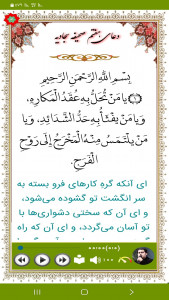 دعای هفتم صحیفه سجادیه
بِسْمِ اللَّهِ الرَّحْمَنِ الرَّحِيمِ
﴿١﴾ يَا مَنْ تُحَلُّ بِهِ عُقَدُ الْمَكَارِهِ،
وَ يَا مَنْ يُفْثَأُ بِهِ حَدُّ الشَّدَائِدِ، وَ يَا
مَنْ يُلْتَمَسُ مِنْهُ الْمَخْرَجُ إِلَى رَوْحِ
الْفَرَجِ.
ای آنکه گره کارهای فرو بسته به
سر انگشت تو گشوده می‌شود،
و ای آن که سختی دشواری‌ها با
تو آسان می‌گردد، و ای آن که راه